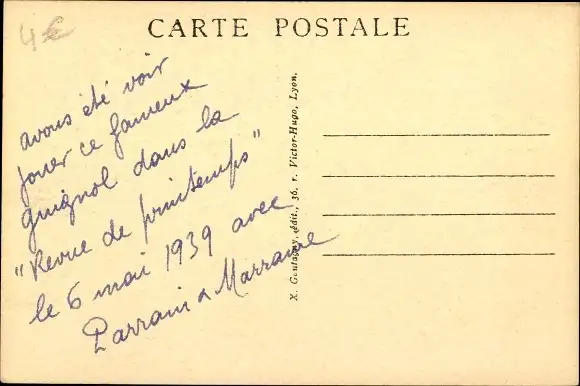 4€
CARTE POSTALE
avons été voir
jouer ce fameux
guignol dans la
"Revue de printemps"
le 6 mai 1939 avec
Parrain & Marraine
X. Goutagny, édit., 36, r. Victor-Hugo, Lyon.